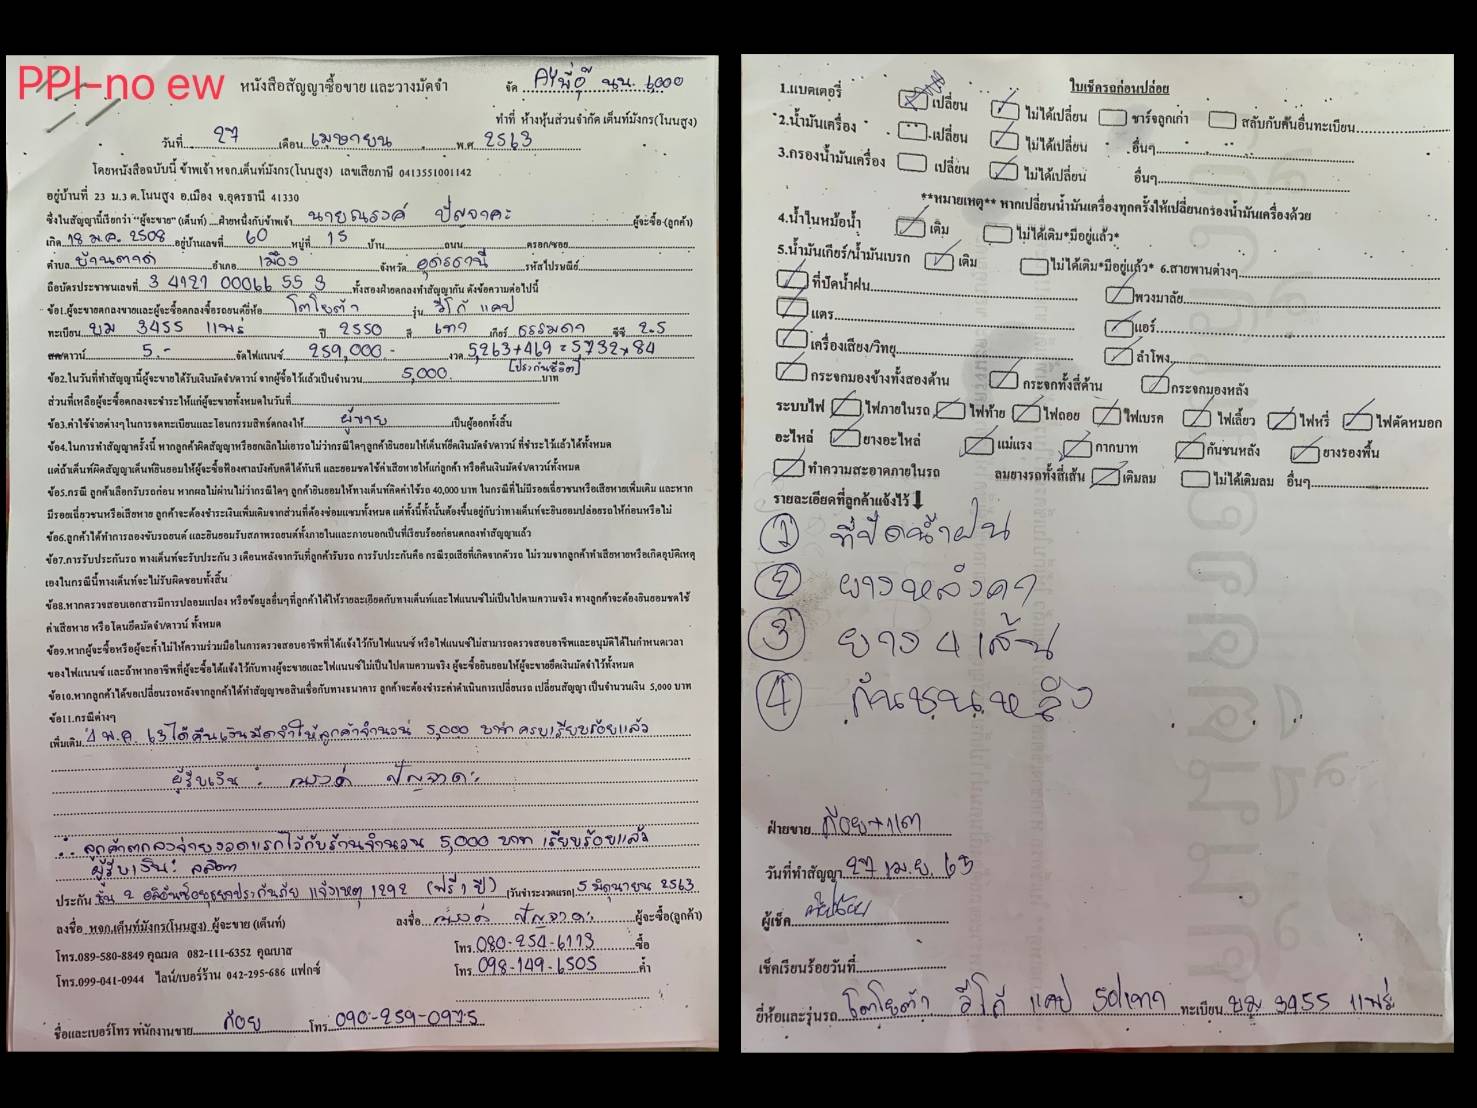 PPI-no ew
หนังสือสัญญาซื้อขาย และวางมัดจำ
จัด AYพี่อู๊ นน. 6,000
ทำที่ ห้างหุ้นส่วนจำกัด เต็นท์มังกร(โนนสูง)
วันที่ 27 เดือน เมษายน พ.ศ. 2563
โดยหนังสือฉบับนี้ ข้าพเจ้า หจก.เต็นท์มังกร(โนนสูง) เลขเสียภาษี 0413551001142
อยู่บ้านที่ 23 ม.3 ต.โนนสูง อ.เมือง จ.อุดรธานี 41330
ซึ่งในสัญญานี้เรียกว่า "ผู้จะขาย" (เต็นท์) ฝ่ายหนึ่งกับข้าพเจ้า นายณรงค์ ปัญจาคะ ผู้จะซื้อ(ลูกค้า)
เกิด 18 ม.ค. 2508 อยู่บ้านเลขที่ 60 หมู่ที่ 15 บ้าน ถนน ตรอก/ซอย
ตำบล บ้านตาด อำเภอ เมือง จังหวัด อุดรธานี รหัสไปรษณีย์
ถือบัตรประชาชนเลขที่ 3 4121 00066 55 3 ทั้งสองฝ่ายตกลงทำสัญญากัน ดังข้อความต่อไปนี้
ข้อ1.ผู้จะขายตกลงขายและผู้จะซื้อตกลงซื้อรถยนต์ยี่ห้อ โตโยต้า รุ่น วีโก้ แคป
ทะเบียน ยม 3455 แพร่ ปี 2550 สี เทา เกียร์ ธรรมดา ซีซี 2.5
ดาวน์ 5.- จัดไฟแนนซ์ 259,000.- งวด 5,263+469=5,732x84
[ประกันชีวิต]
ข้อ2.ในวันที่ทำสัญญานี้ผู้จะขายได้รับเงินมัดจำ/ดาวน์ จากผู้ซื้อไว้แล้วเป็นจำนวน 5,000 บาท
ส่วนที่เหลือผู้จะซื้อตกลงจะชำระให้แก่ผู้จะขายทั้งหมดในวันที่
ข้อ3.ค่าใช้จ่ายต่างๆในการจดทะเบียนและโอนกรรมสิทธิ์ตกลงให้ ผู้ขาย เป็นผู้ออกทั้งสิ้น
ข้อ4.ในการทำสัญญาครั้งนี้ หากลูกค้าผิดสัญญาหรือยกเลิกไม่เอารถไม่ว่ากรณีใดๆลูกค้ายินยอมให้เต็นท์ยึดเงินมัดจำ/ดาวน์ ที่ชำระไว้แล้วได้ทั้งหมด
แต่ถ้าเต็นท์ผิดสัญญาเต็นท์ยินยอมให้ผู้จะซื้อฟ้องศาลบังคับคดีได้ทันที และยอมชดใช้ค่าเสียหายให้แก่ลูกค้า หรือคืนเงินมัดจำ/ดาวน์ทั้งหมด
ข้อ5.กรณี ลูกค้าเลือกรับรถก่อน หากผลไม่ผ่านไม่ว่ากรณีใดๆ ลูกค้ายินยอมให้ทางเต็นท์คิดค่าใช้รถ 40,000 บาท ในกรณีที่ไม่มีรอยเฉี่ยวชนหรือเสียหายเพิ่มเติม และหาก
มีรอยเฉี่ยวชนหรือเสียหาย ลูกค้าจะต้องชำระเงินเพิ่มเติมจากส่วนที่ต้องซ่อมแซมทั้งหมด แต่ทั้งนี้ทั้งนั้นต้องขึ้นอยู่กับว่าทางเต็นท์จะยินยอมปล่อยรถให้ก่อนหรือไม่
ข้อ6.ลูกค้าได้ทำการลองขับรถยนต์ และยินยอมรับสภาพรถยนต์ทั้งภายในและภายนอกเป็นที่เรียบร้อยก่อนตกลงทำสัญญาแล้ว
ข้อ7.การรับประกันรถ ทางเต็นท์จะรับประกัน 3 เดือนหลังจากวันที่ลูกค้ารับรถ การรับประกันคือ กรณีรถเสียที่เกิดจากตัวรถ ไม่รวมจากลูกค้าทำเสียหายหรือเกิดอุบัติเหตุ
เองในกรณีนี้ทางเต็นท์จะไม่รับผิดชอบทั้งสิ้น
ข้อ8.หากตรวจสอบเอกสารมีการปลอมแปลง หรือข้อมูลอื่นๆที่ลูกค้าได้ให้รายละเอียดกับทางเต็นท์และไฟแนนซ์ไม่เป็นไปตามความจริง ทางลูกค้าจะต้องยินยอมชดใช้
ค่าเสียหาย หรือโดนยึดมัดจำ/ดาวน์ ทั้งหมด
ข้อ9.หากผู้จะซื้อหรือผู้จะค้ำไม่ให้ความร่วมมือในการตรวจสอบอาชีพที่ได้แจ้งไว้กับไฟแนนซ์ หรือไฟแนนซ์ไม่สามารถตรวจสอบอาชีพและอนุมัติได้ในกำหนดเวลา
ของไฟแนนซ์ และถ้าหากอาชีพที่ผู้จะซื้อได้แจ้งไว้กับทางผู้จะขายและไฟแนนซ์ไม่เป็นไปตามความจริง ผู้จะซื้อยินยอมให้ผู้จะขายยึดเงินมัดจำไว้ทั้งหมด
ข้อ10.หากลูกค้าได้ขอเปลี่ยนรถหลังจากลูกค้าได้ทำสัญญาขอสินเชื่อกับทางธนาคาร ลูกค้าจะต้องชำระค่าดำเนินการเปลี่ยนรถ เปลี่ยนสัญญา เป็นจำนวนเงิน 5,000 บาท
ข้อ11.กรณีต่างๆ
เพิ่มเติม 4 พ.ค. 63 ได้คืนเงินมัดจำให้ลูกค้าจำนวน 5,000 บาท ครบเรียบร้อยแล้ว
ผู้รับเงิน : ณรงค์ ปัญจาคะ
∴ ลูกค้าตกลงจ่ายงวดแรกไว้กับร้านจำนวน 5,000 บาท เรียบร้อยแล้ว
ผู้รับเงิน: ลลิตา
ประกัน ชั้น 2 อลิอันซ์อยุธยาประกันภัย แจ้งเหตุ 1292 (ฟรี 1 ปี) (วันชำระงวดแรก) 5 มิถุนายน 2563
ลงชื่อ หจก.เต็นท์มังกร(โนนสูง) ผู้จะขาย (เต็นท์) ลงชื่อ ณรงค์ ปัญจาคะ ผู้จะซื้อ(ลูกค้า)
โทร.089-580-8849 คุณมด 082-111-6352 คุณบาส โทร. 080-254-6113 ซื้อ
โทร.099-041-0944 ไลน์/เบอร์ร้าน 042-295-686 แฟกซ์ โทร. 098-149-6505 ค้ำ
ชื่อและเบอร์โทร พนักงานขาย ก้อย โทร 090-259-0975
ใบเช็ครถก่อนปล่อย
1.แบตเตอรี่ เปลี่ยน ไม่ได้เปลี่ยน ชาร์จลูกเก่า สลับกับคันอื่นทะเบียน
2.น้ำมันเครื่อง เปลี่ยน ไม่ได้เปลี่ยน อื่นๆ
3.กรองน้ำมันเครื่อง เปลี่ยน ไม่ได้เปลี่ยน อื่นๆ
**หมายเหตุ** หากเปลี่ยนน้ำมันเครื่องทุกครั้งให้เปลี่ยนกรองน้ำมันเครื่องด้วย
4.น้ำในหม้อน้ำ เติม ไม่ได้เติม*มีอยู่แล้ว*
5.น้ำมันเกียร์/น้ำมันเบรก เติม ไม่ได้เติม*มีอยู่แล้ว* 6.สายพานต่างๆ
ที่ปัดน้ำฝน พวงมาลัย
แตร แอร์
เครื่องเสียง/วิทยุ ลำโพง
กระจกมองข้างทั้งสองด้าน กระจกทั้งสี่ด้าน กระจกมองหลัง
ระบบไฟ ไฟภายในรถ ไฟท้าย ไฟถอย ไฟเบรค ไฟเลี้ยว ไฟหรี่ ไฟตัดหมอก
อะไหล่ ยางอะไหล่ แม่แรง กากบาท กันชนหลัง ยางรองพื้น
ทำความสะอาดภายในรถ ลมยางรถทั้งสี่เส้น เติมลม ไม่ได้เติมลม อื่นๆ
รายละเอียดที่ลูกค้าแจ้งไว้
① ที่ปัดน้ำฝน
② ยางหลังคา
③ ยาง 4 เส้น
④ กันชนหลัง
ฝ่ายขาย ก้อย+แต
วันที่ทำสัญญา 27 เม.ย. 63
ผู้เช็ค
เช็คเรียบร้อยวันที่
ยี่ห้อและรุ่นรถ โตโยต้า วีโก้ แคป 50/เทา ทะเบียน ยม 3455 แพร่